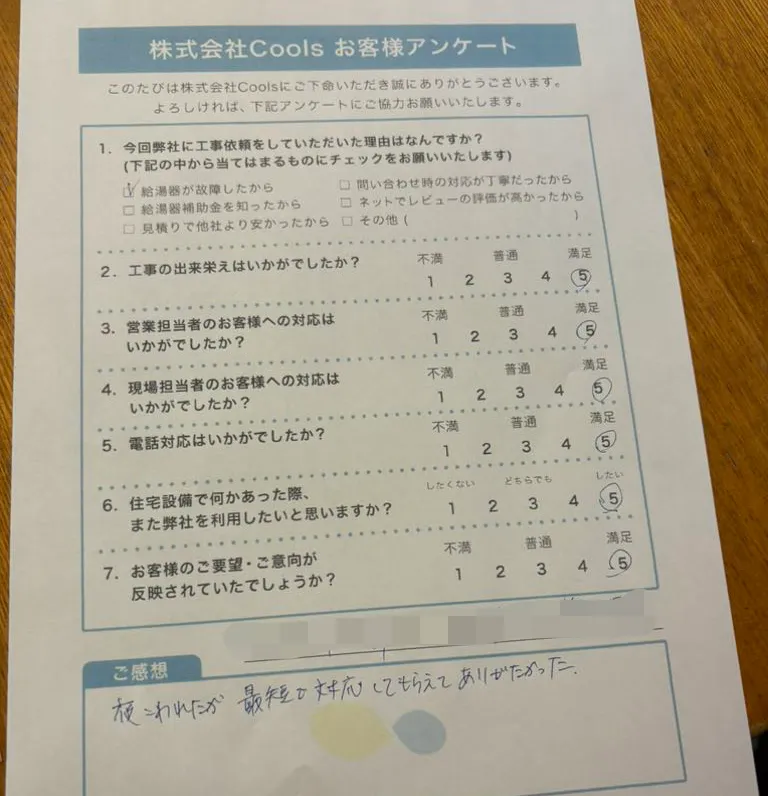 株式会社Cools お客様アンケート
このたびは株式会社Coolsにご下命いただき誠にありがとうございます。
よろしければ、下記アンケートにご協力お願いいたします。
1. 今回弊社に工事依頼をしていただいた理由はなんですか?
(下記の中から当てはまるものにチェックをお願いいたします)
給湯器が故障したから 問い合わせ時の対応が丁寧だったから
給湯器補助金を知ったから ネットでレビューの評価が高かったから
見積りで他社より安かったから その他 ( )
不満 普通 満足
2. 工事の出来栄えはいかがでしたか?
1 2 3 4 5
不満 普通 満足
3. 営業担当者のお客様への対応は
いかがでしたか?
1 2 3 4 5
不満 普通 満足
4. 現場担当者のお客様への対応は
いかがでしたか?
1 2 3 4 5
不満 普通 満足
5. 電話対応はいかがでしたか?
1 2 3 4 5
したくない どちらでも したい
6. 住宅設備で何かあった際、
また弊社を利用したいと思いますか?
1 2 3 4 5
不満 普通 満足
7. お客様のご要望・ご意向が
反映されていたでしょうか?
1 2 3 4 5
ご感想
夜こわれたが 最短で対応してもらえてありがたかった.